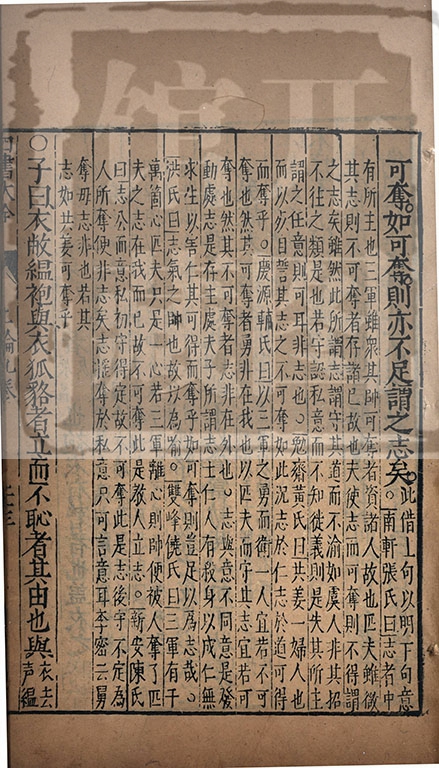 可奪如可奪則亦不足謂之志矣。此借上句以明下句意
。南軒張氏曰志者中
有所主也三軍雖衆其帥可奪者資諸人故也匹夫雖微
其志則不可奪者存諸己故也夫使志而可奪則不得謂
之志矣雖然此所謂志謂守其道而不渝如虞人非其招
不往之類是也若守認私意而不知徙義則是失其所主
謂之任意則可耳非志也。勉齋黃氏曰共姜一婦人也
而以死自誓其志之不可奪如此况志於仁志於道可得
而奪乎。慶源輔氏曰以三軍之勇而衛一人宜若不可
奪也然其可奪者勇非在我也以匹夫而守其志宜若可
奪也然其不可奪者志非在外也。志與意不同意是發
動處志是存主處夫子所謂志士仁人有殺身以成仁無
求生以害仁其可得而奪乎如可奪則豈足以爲志哉。
洪氏曰志氣之帥也故以爲喻。雙峰饒氏曰三軍有千
萬箇心匹夫只是一心若三軍離心則帥便被人奪了匹
夫之志在我而已故不可奪此是教人立志。新安陳氏
曰志公而意私初守得定故不可奪此是志後守不定爲
人所奪便非志矣志惟奪於私意只可言意耳李密云舅
奪母志非也若其
志如共姜可奪乎
○子曰衣敝縕袍與衣狐貉者立而不恥者其由也與衣去
聲縕